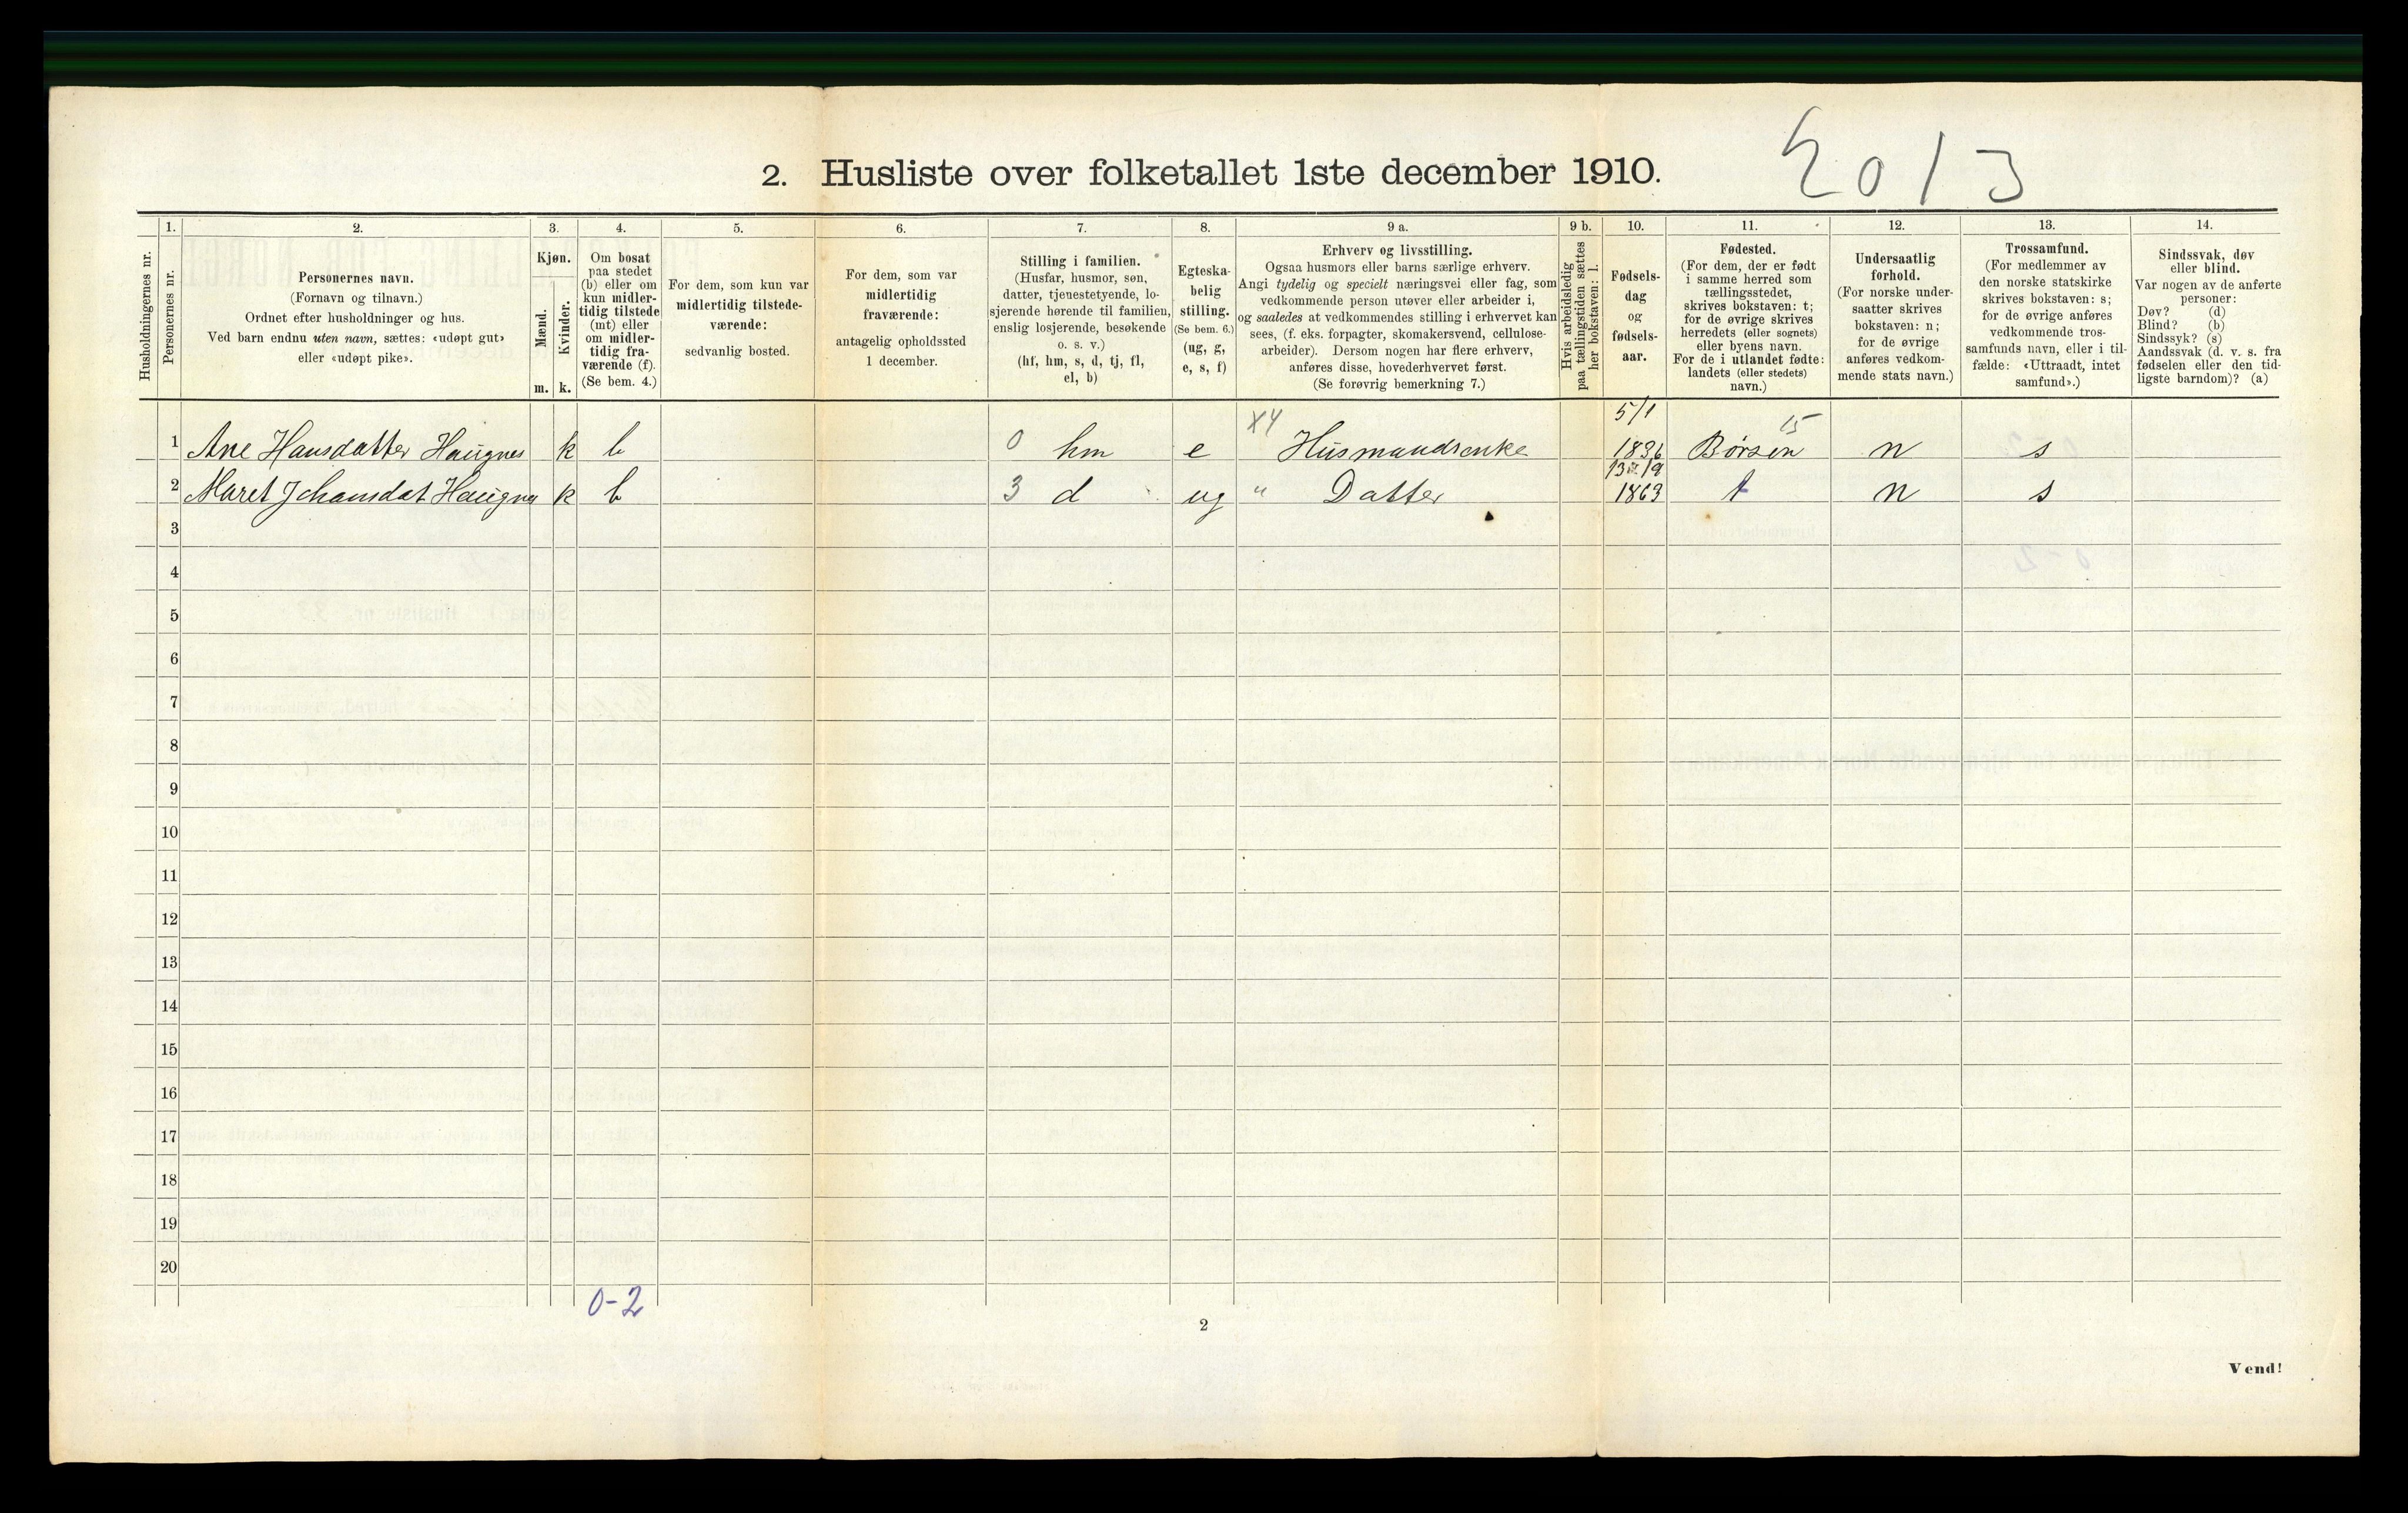 2. Husliste over folketallet 1ste december 1910.
2013
1. 2. 3. 4. 5. 6. 7. 8. 9 a. 9 b. 10. 11. 12. 13. 14.
Husholdningernes nr.
Personernes nr.
Personernes navn.
(Fornavn og tilnavn.)
Ordnet efter husholdninger og hus.
Ved barn endnu uten navn, sættes: «udøpt gut»
eller «udøpt pike».
Kjøn.
Mænd.
Kvinder.
m. k.
Om bosat
paa stedet
(b) eller om
kun midler-
tidig tilstede
(mt) eller
om midler-
tidig fra-
værende (f).
(Se bem. 4.)
For dem, som kun var
midlertidig tilstede-
værende:
sedvanlig bosted.
For dem, som var
midlertidig
fraværende:
antagelig opholdssted
1 december.
Stilling i familien.
(Husfar, husmor, søn,
datter, tjenestetyende, lo-
sjerende hørende til familien,
enslig losjerende, besøkende
o. s. v.)
(hf, hm, s, d, tj, fl,
el, b)
Egteska-
belig
stilling.
(Se bem. 6.)
(ug, g,
e, s, f)
Erhverv og livsstilling.
Ogsaa husmors eller barns særlige erhverv.
Angi tydelig og specielt næringsvei eller fag, som
vedkommende person utøver eller arbeider i,
og saaledes at vedkommendes stilling i erhvervet kan
sees, (f. eks. forpagter, skomakersvend, cellulose-
arbeider). Dersom nogen har flere erhverv,
anføres disse, hovederhvervet først.
(Se forøvrig bemerkning 7.)
Hvis arbeidsledig
paa tællingstiden sættes
her bokstaven: l.
Fødsels-
dag
og
fødsels-
aar.
Fødested.
(For dem, der er født
i samme herred som
tællingsstedet,
skrives bokstaven: t;
for de øvrige skrives
herredets (eller sognets)
eller byens navn.
For de i utlandet fødte:
landets (eller stedets)
navn.)
Undersaatlig
forhold.
(For norske under-
saatter skrives
bokstaven: n;
for de øvrige
anføres vedkom-
mende stats navn.)
Trossamfund.
(For medlemmer av
den norske statskirke
skrives bokstaven: s;
for de øvrige anføres
vedkommende tros-
samfunds navn, eller i til-
fælde: «Uttraadt, intet
samfund».)
Sindssvak, døv
eller blind.
Var nogen av de anførte
personer:
Døv? (d)
Blind? (b)
Sindssyk? (s)
Aandssvak (d. v. s. fra
fødselen eller den tid-
ligste barndom)? (a)
X4 5/1 15
1 Ane Hansdatter Haugnes k b 0 hm e Husmandsenke 1836 Børsen n s
13/9
2 Maret Johansdat Haugnes k b 3 d ug " Datter 1863 t n s
3
4
5
6
7
8
9
10
11
12
13
14
15
16
17
18
19
20
0-2
2
Vend!